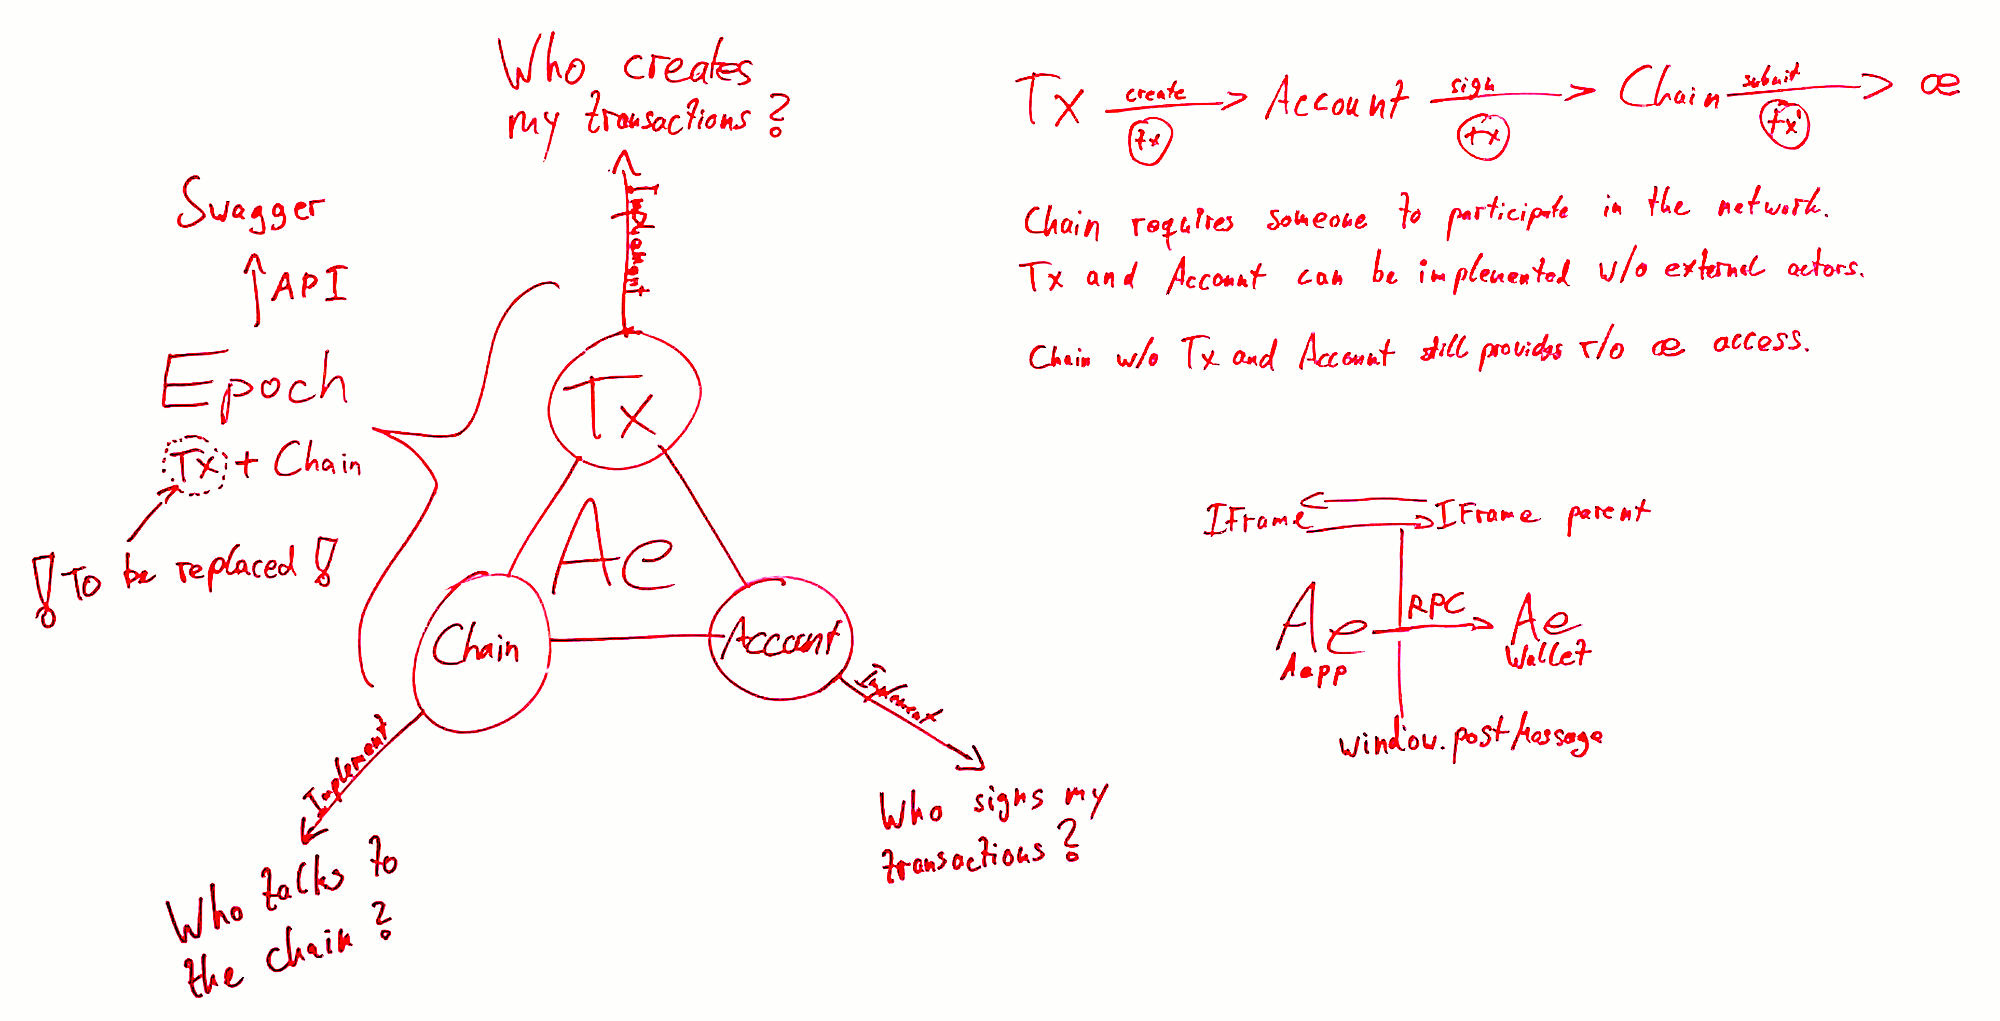 Who creates
my transactions?
Implement
Swagger
API
Epoch
Tx + Chain
! To be replaced !
Tx
Ae
Chain
Account
Implement
Who talks to
the chain?
Implement
Who signs my
transactions?
Tx create Account sign Chain submit æ
tx tx tx'
Chain requires someone to participate in the network.
Tx and Account can be implemented w/o external actors.
Chain w/o Tx and Account still provides r/o æ access.
IFrame IFrame parent
Ae RPC Ae
Aapp Wallet
window.postMessage